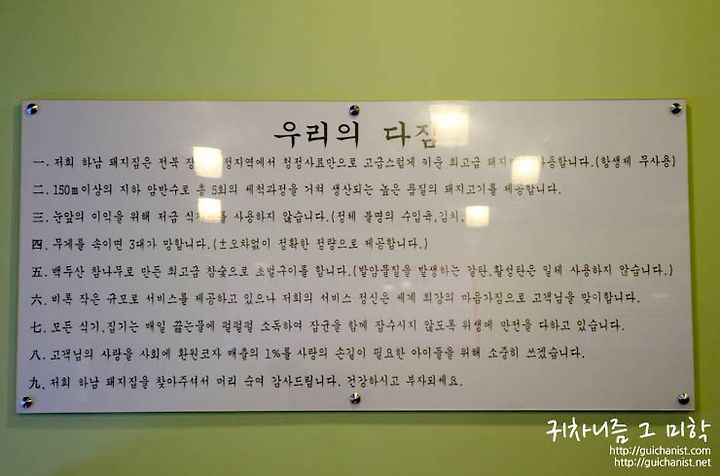 우리의 다짐
一. 저희 하남 돼지집은 전북 청정사료만으로 고급스럽게 키운 최고급 사용합니다.(항생제 무사용)
二. 150m이상의 지하 암반수로 총 5회의 세척과정을 거쳐 생산되는 높은 품질의 돼지고기를 제공합니다.
三. 눈앞의 이익을 위해 저급 사용하지 않습니다.(정체 불명의 수입육,김치,
四. 무게를 속이면 3대가 망합니다.(±오차없이 정확한 정량으로 제공합니다.)
五. 백두산 참나무로 만든 최고급 참숯으로 초벌구이를 합니다.(발암물질을 발생하는 갈탄,활성탄은 일체 사용하지 않습니다.)
六. 비록 작은 규모로 서비스를 제공하고 있으나 저희의 서비스 정신은 세계 최강의 마음가짐으로 고객님을 맞이합니다.
七. 모든 식기,집기는 매일 끓는물에 펄펄펄 소독하여 잡균을 함께 잡수시지 않도록 위생에 만전을 다하고 있습니다.
八. 고객님의 사랑을 사회에 환원코자 매출의 1%를 사랑의 손길이 필요한 아이들을 위해 소중히 쓰겠습니다.
九. 저희 하남 돼지집을 찾아주셔서 머리 숙여 감사드립니다. 건강하시고 부자되세요.
귀차니즘 그 미학
http://guichanist.com
http://guichanist.net